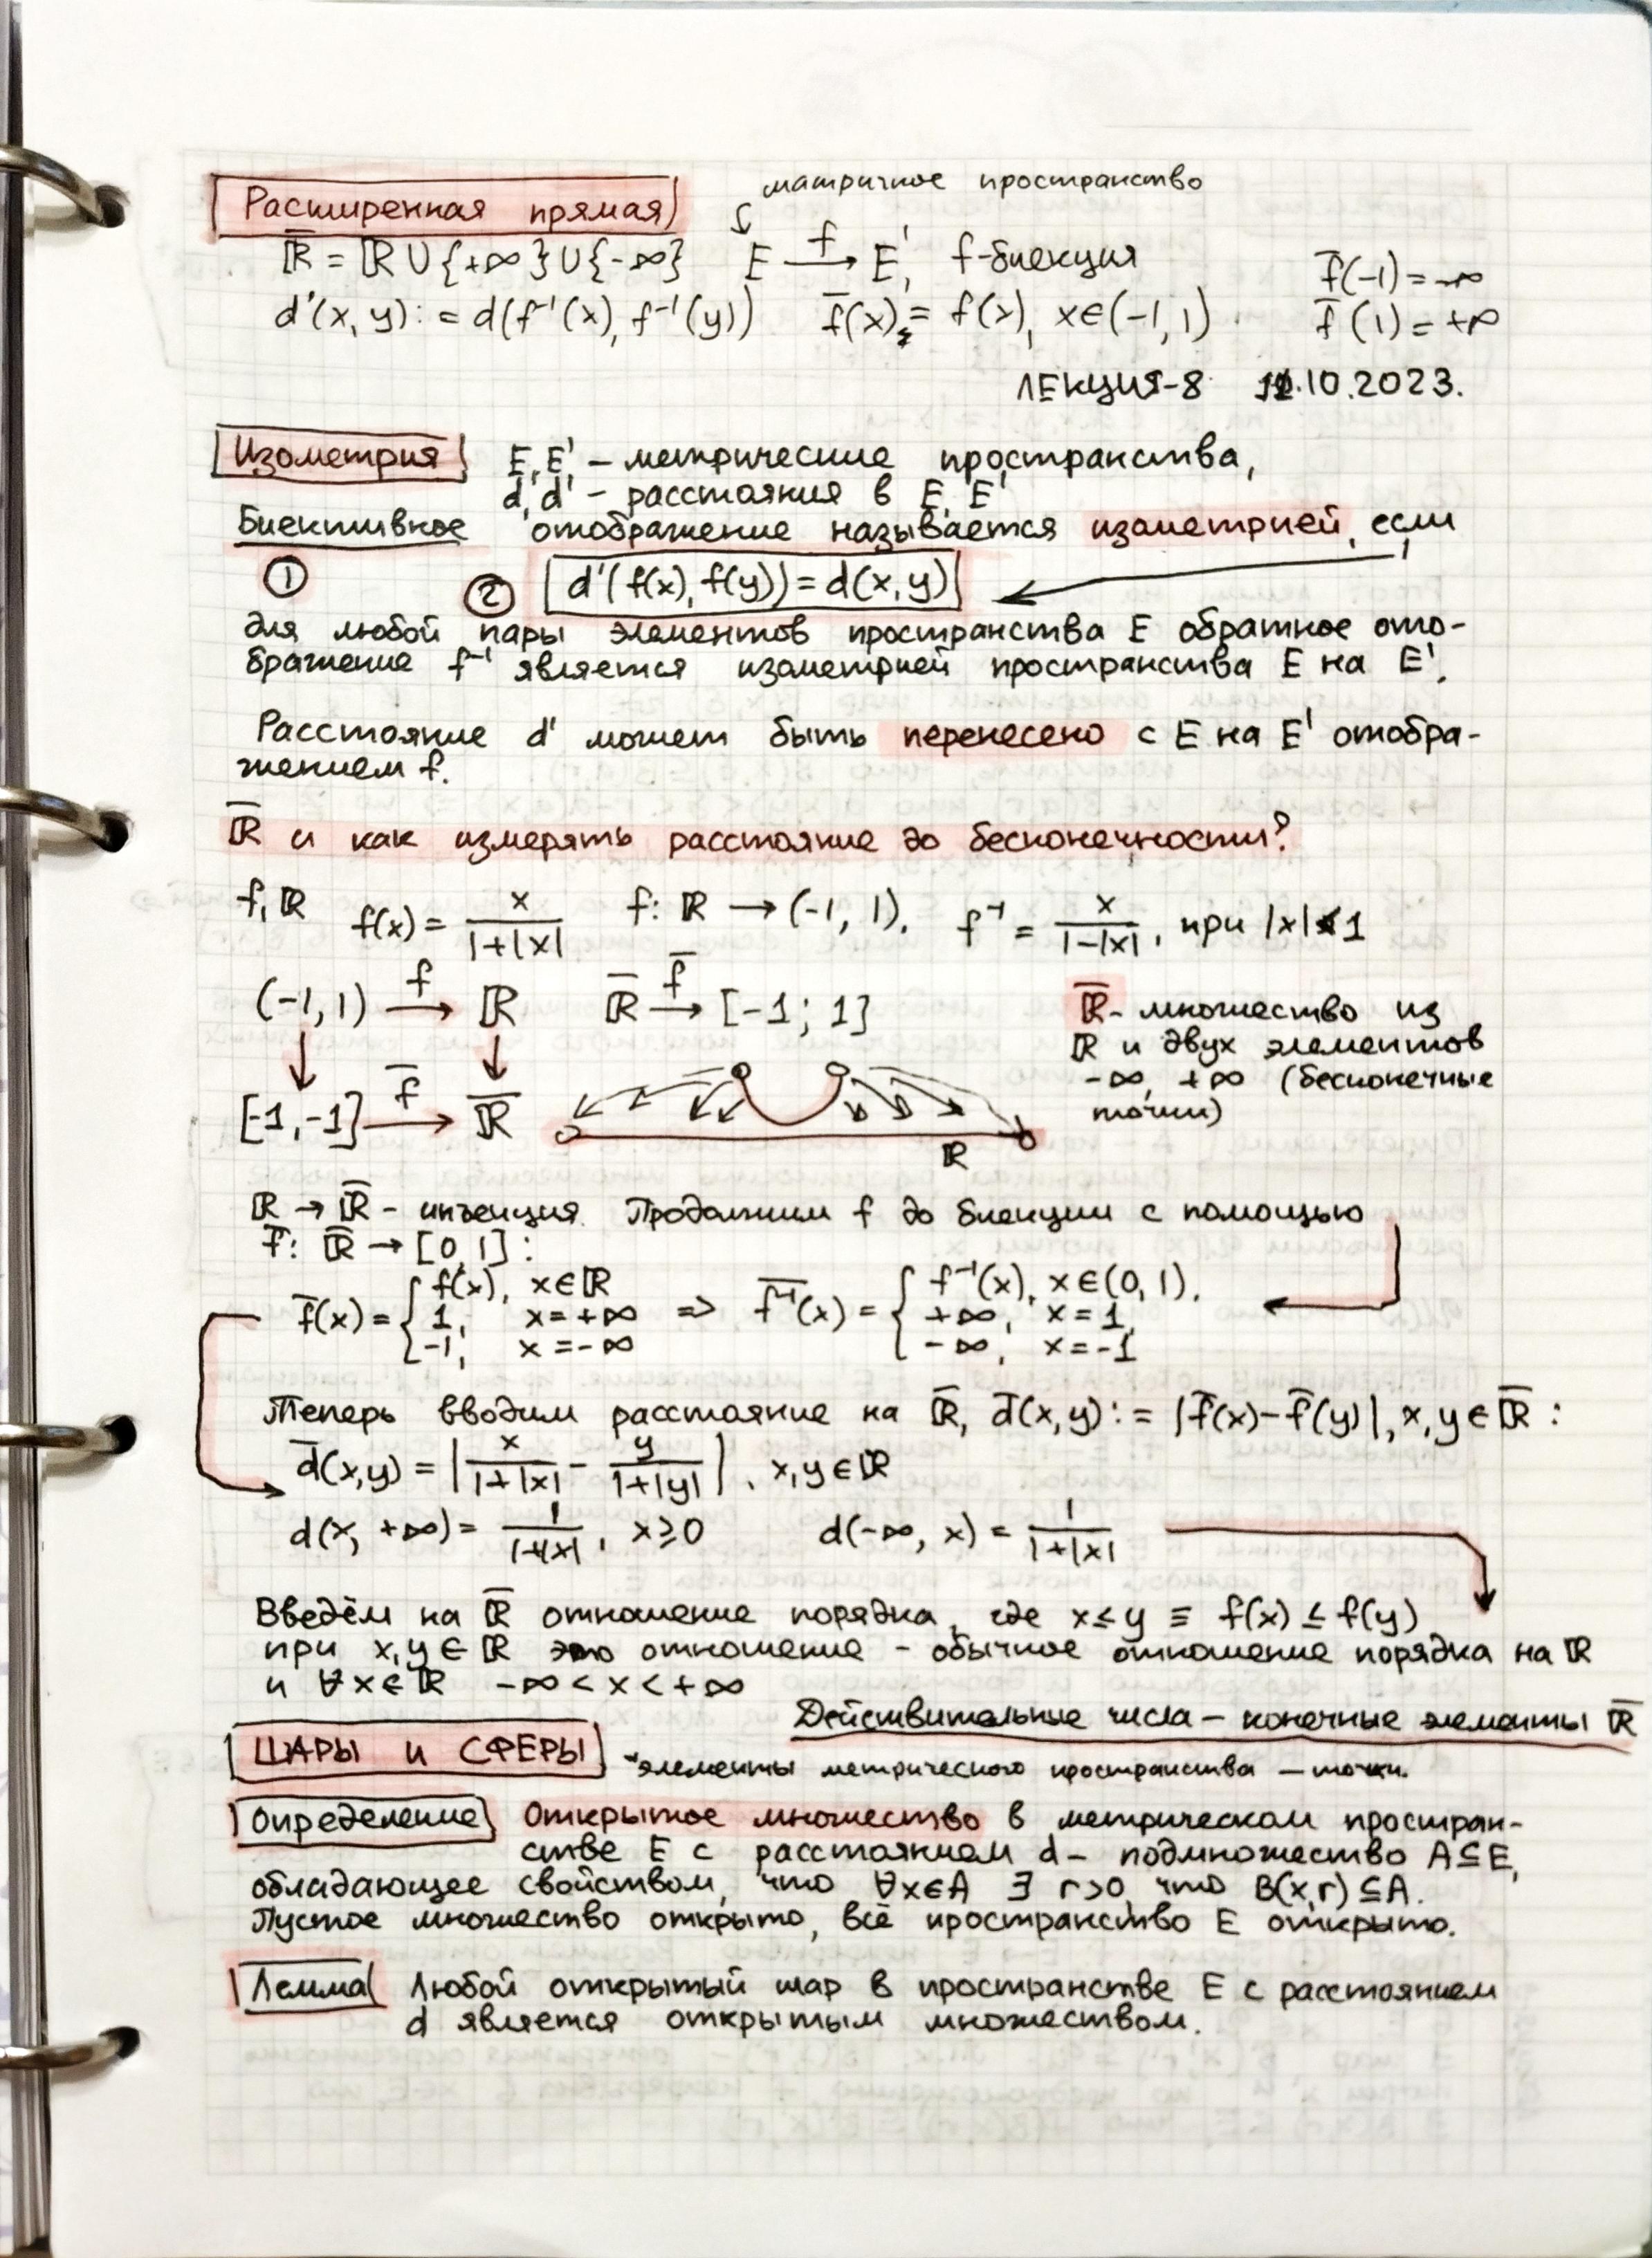 Расширенная прямая
матричное пространство
R̅ = R ∪ {+∞} ∪ {-∞}
E —f→ E', f-биекция
f̅(-1) = -∞
d'(x, y) := d(f⁻¹(x), f⁻¹(y))
f̅(x) = f(x), x∈(-1, 1)
f̅(1) = +∞
ЛЕКЦИЯ-8 .10.2023.
Изометрия E, E' – метрические пространства,
d, d' - расстояния в E, E'
Биективное отображение называется изометрией, если
① ② d'(f(x), f(y)) = d(x, y)
для любой пары элементов пространства E обратное ото-
бражение f⁻¹ является изометрией пространства E на E'.
Расстояние d' может быть перенесено с E на E' отобра-
жением f.
R̅ и как измерять расстояние до бесконечности?
f, R f(x) = x/(1+|x|) f: R → (-1, 1). f⁻¹ = x/(1-|x|), при |x|<1
(-1, 1) —f→ R R̅ —f̅→ [-1; 1]
[-1, -1] —f̅→ R̅
R
R̅ - множество из
R и двух элементов
-∞, +∞ (бесконечные
точки)
R → R̅ - инъекция. Продолжим f до биекции с помощью
f̅: R̅ → [0, 1]:
f̅(x) = { f(x), x∈R => f̅⁻¹(x) = { f⁻¹(x), x∈(0, 1).
1, x=+∞ +∞, x=1,
-1, x=-∞ -∞, x=-1
Теперь вводим расстояние на R̅, d̅(x,y) := |f̅(x)-f̅(y)|, x,y∈R̅ :
d̅(x,y) = |x/(1+|x|) - y/(1+|y|)|, x,y∈R
d(x, +∞) = 1/(1+|x|), x≥0 d(-∞, x) = 1/(1+|x|)
Введём на R̅ отношение порядка, где x≤y ≡ f(x) ≤ f(y)
при x,y∈R это отношение - обычное отношение порядка на R
и ∀x∈R -∞ < x < +∞
Действительные числа – конечные элементы R̅
ШАРЫ и СФЕРЫ *элементы метрического пространства – точки.
Определение Открытое множество в метрическом простран-
стве E с расстоянием d – подмножество A⊆E,
обладающее свойством, что ∀x∈A ∃ r>0, что B(x,r)⊆A.
Пустое множество открыто, всё пространство E открыто.
Лемма Любой открытый шар в пространстве E с расстоянием
d является открытым множеством.